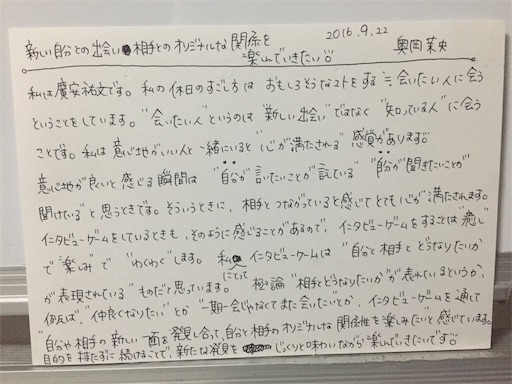 新しい自分との出会い 相手とのオリジナルな関係を
楽しんでいきたい。
2016.9.22
奥岡茉央
私は廣安祐文です。私の休日のすごし方は おもしろそうなコトをする≒会いたい人に会う
ということをしています。"会いたい人"というのは"新しい出会い"ではなく"知っている人"に会う
ことです。私は意心地がいい人と一緒にいると"心"が満たされる"感覚があります。
意心地が良いと感じる瞬間は "自分が言いたいことが言えている" "自分が聞きたいことが
聞けている"と思うときです。そういうときに、相手とつながっていると感じてとても心が満たされます。
インタビューゲームをしているときも、そのように感じることがあるので、インタビューゲームをすることは"癒し"
で"楽しみ"で"わくわく"します。 私にとってインタビューゲームは"自分と相手とどうなりたいか
が表現されている"ものだと思っています。 極論"相手とどうなりたいか"が表れているというか、
例えば"仲良くなりたい"とか"一期一会じゃなくてまた会いたいとか、インタビューゲームを通して
"自分や相手の新しい一面を発見し合って、自分と相手のオリジナルな関係性を楽しみたい"と感じています。
目的を持たずに続けることで、新たな発見を じっくりと味わいながら楽しんでいきたいです。